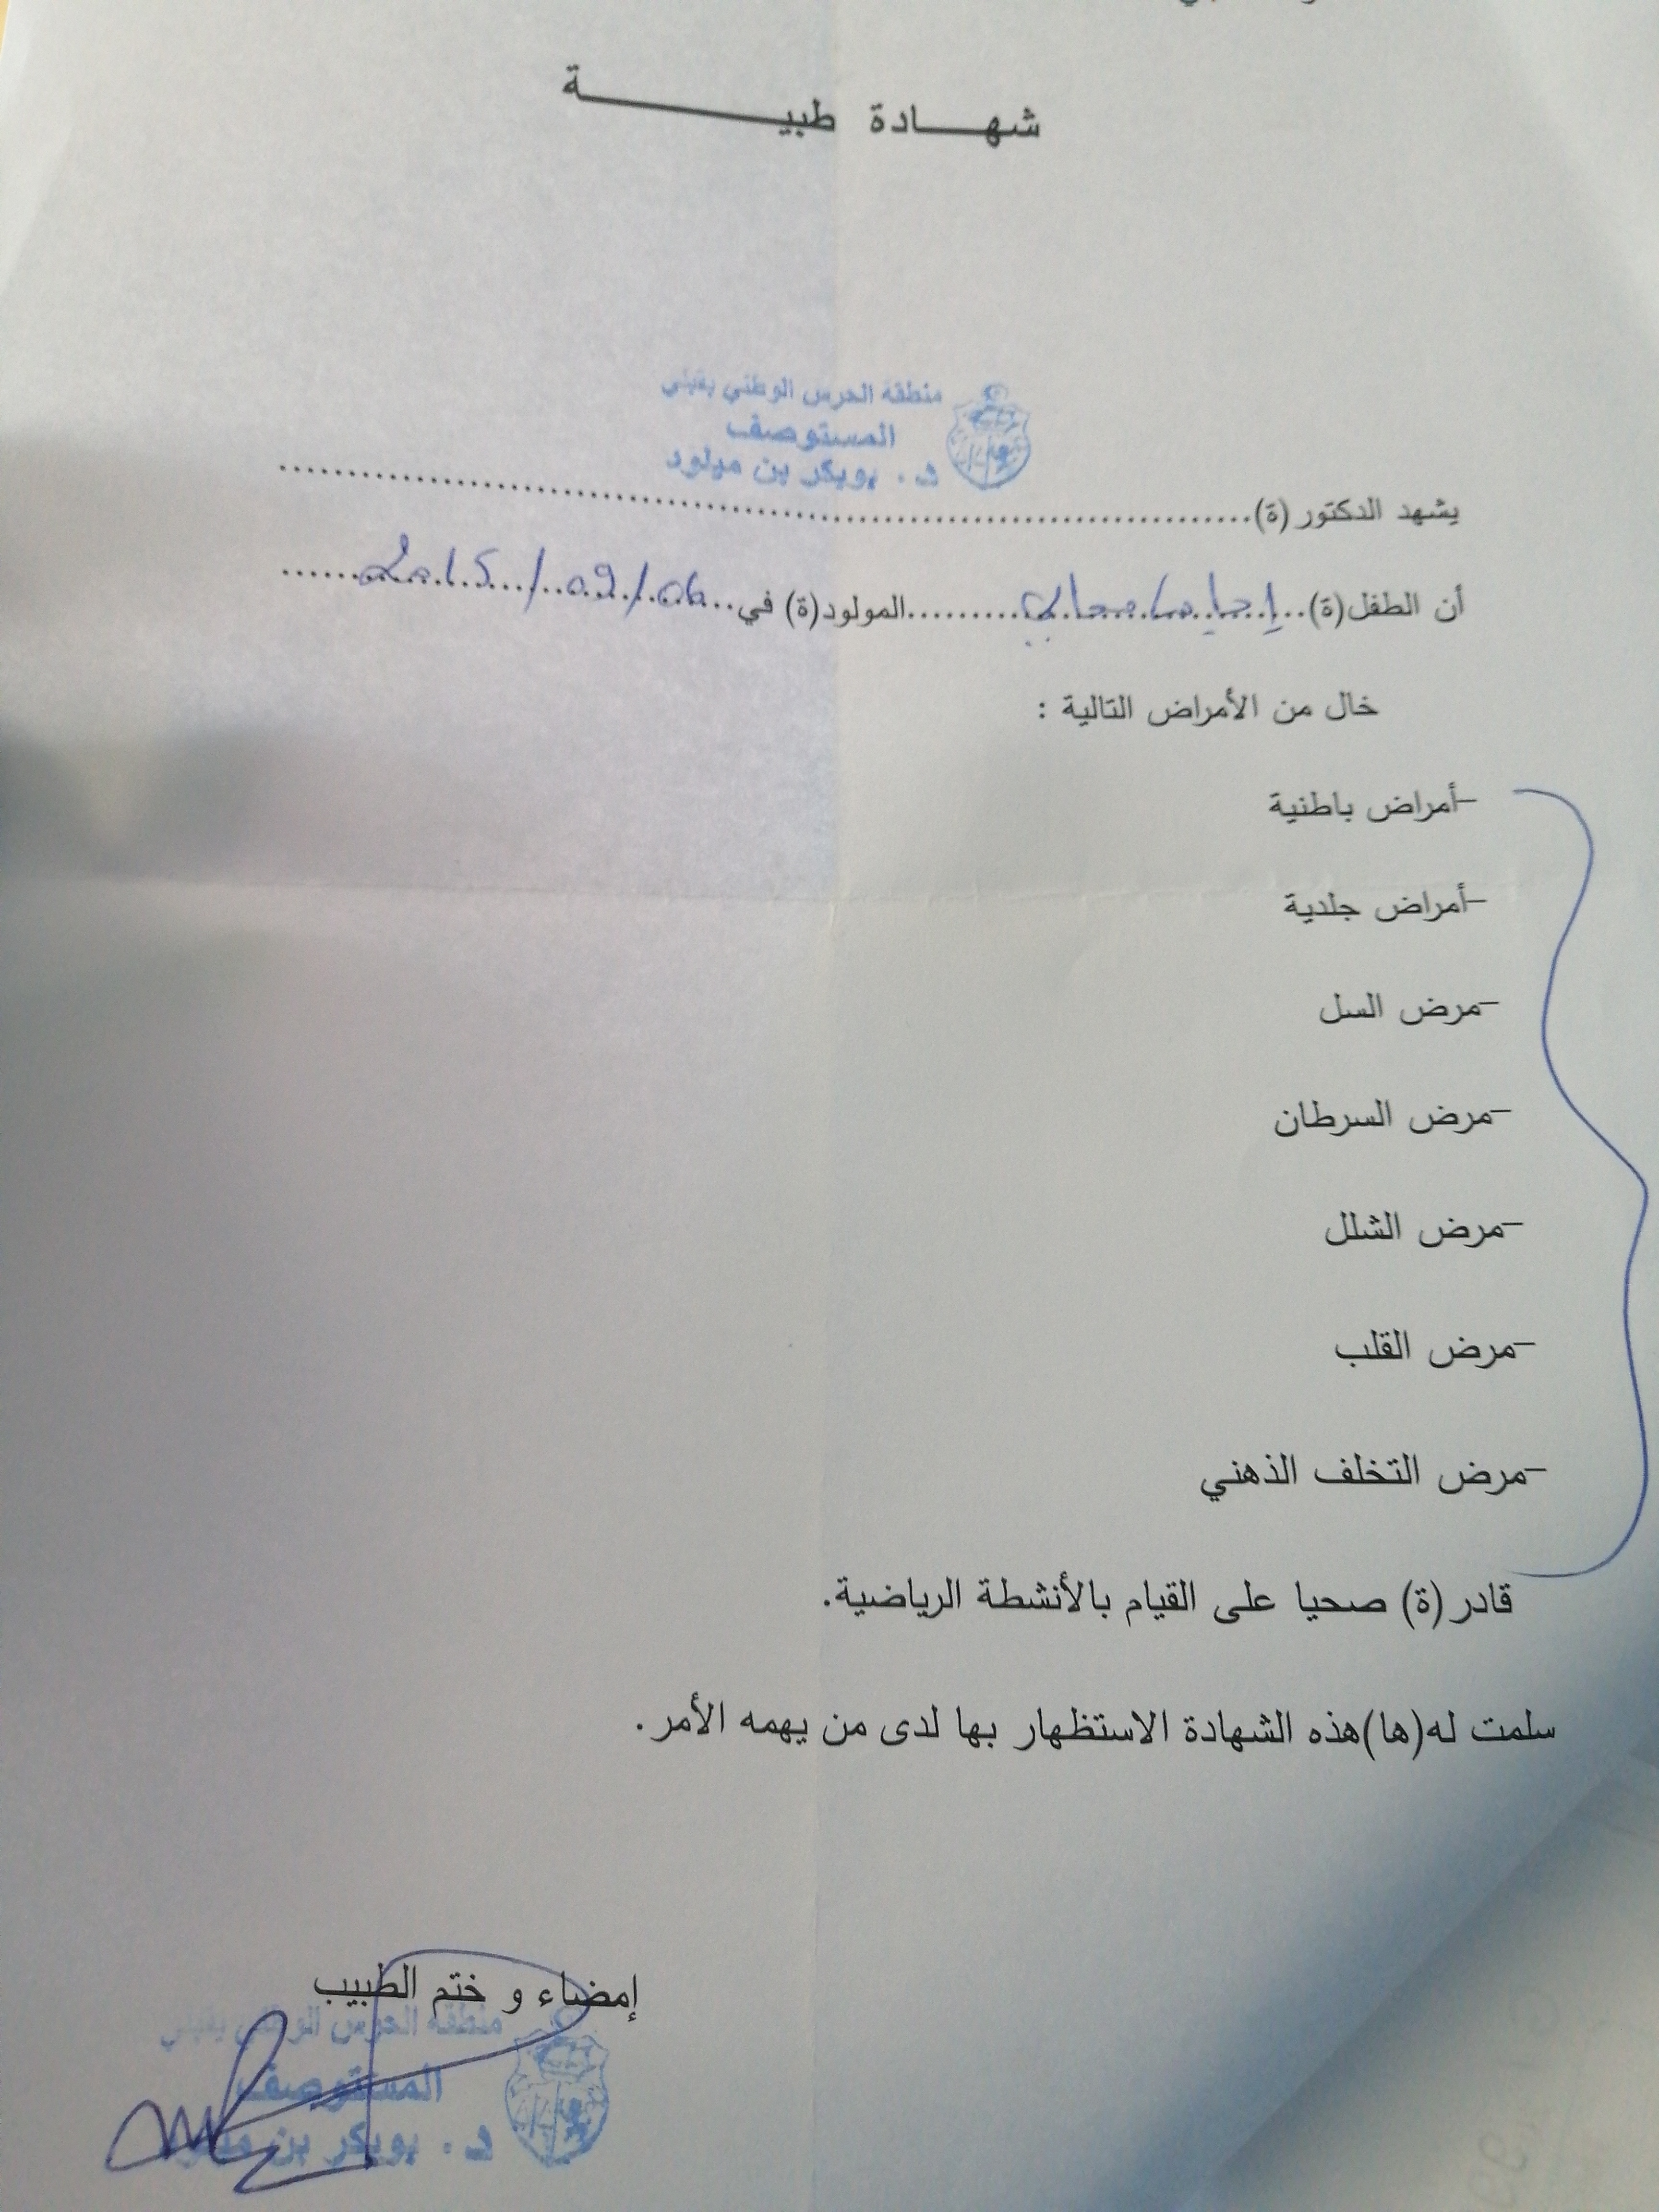 شهادة طبية
منطقة الحرس الوطني بقبلي
المستوصف
د. بوبكر بن ميلود
يشهد الدكتور (ة)..........................................................................
أن الطفل(ة)...............المولود(ة) في..06/09/2015......
خال من الأمراض التالية :
-أمراض باطنية
-أمراض جلدية
-مرض السل
-مرض السرطان
-مرض الشلل
-مرض القلب
-مرض التخلف الذهني
قادر (ة) صحيا على القيام بالأنشطة الرياضية.
سلمت له(ها)هذه الشهادة الاستظهار بها لدى من يهمه الأمر.
إمضاء و ختم الطبيب
منطقة الحرس الوطني بقبلي
المستوصف
د. بوبكر بن ميلود